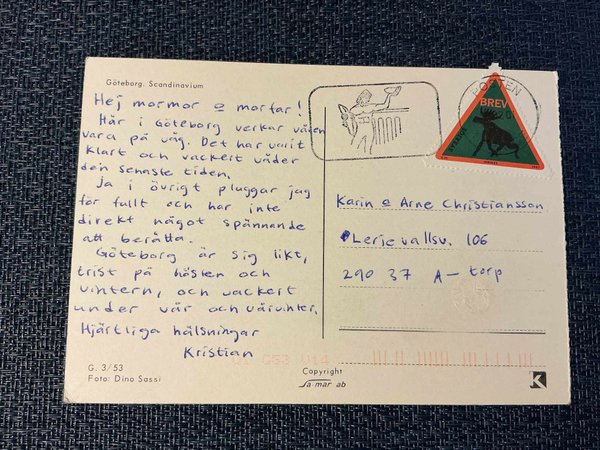 Göteborg. Scandinavium
Hej mormor o morfar!
Här i Göteborg verkar våren
vara på väg. Det har varit
klart och vackert väder
den senaste tiden.
Ja i övrigt pluggar jag
för fullt och har inte
direkt något spännande
att berätta.
Göteborg är sig likt,
trist på hösten och
vintern, och vackert
under vår och vårvinter.
Hjärtliga hälsningar
Kristian
G. 3/53
Foto: Dino Sassi
POSTEN
BREV
SVERIGE
Karin o Arne Christiansson
Lerjevallsv. 106
290 37 A-torp
Copyright
Sa-mar ab
K